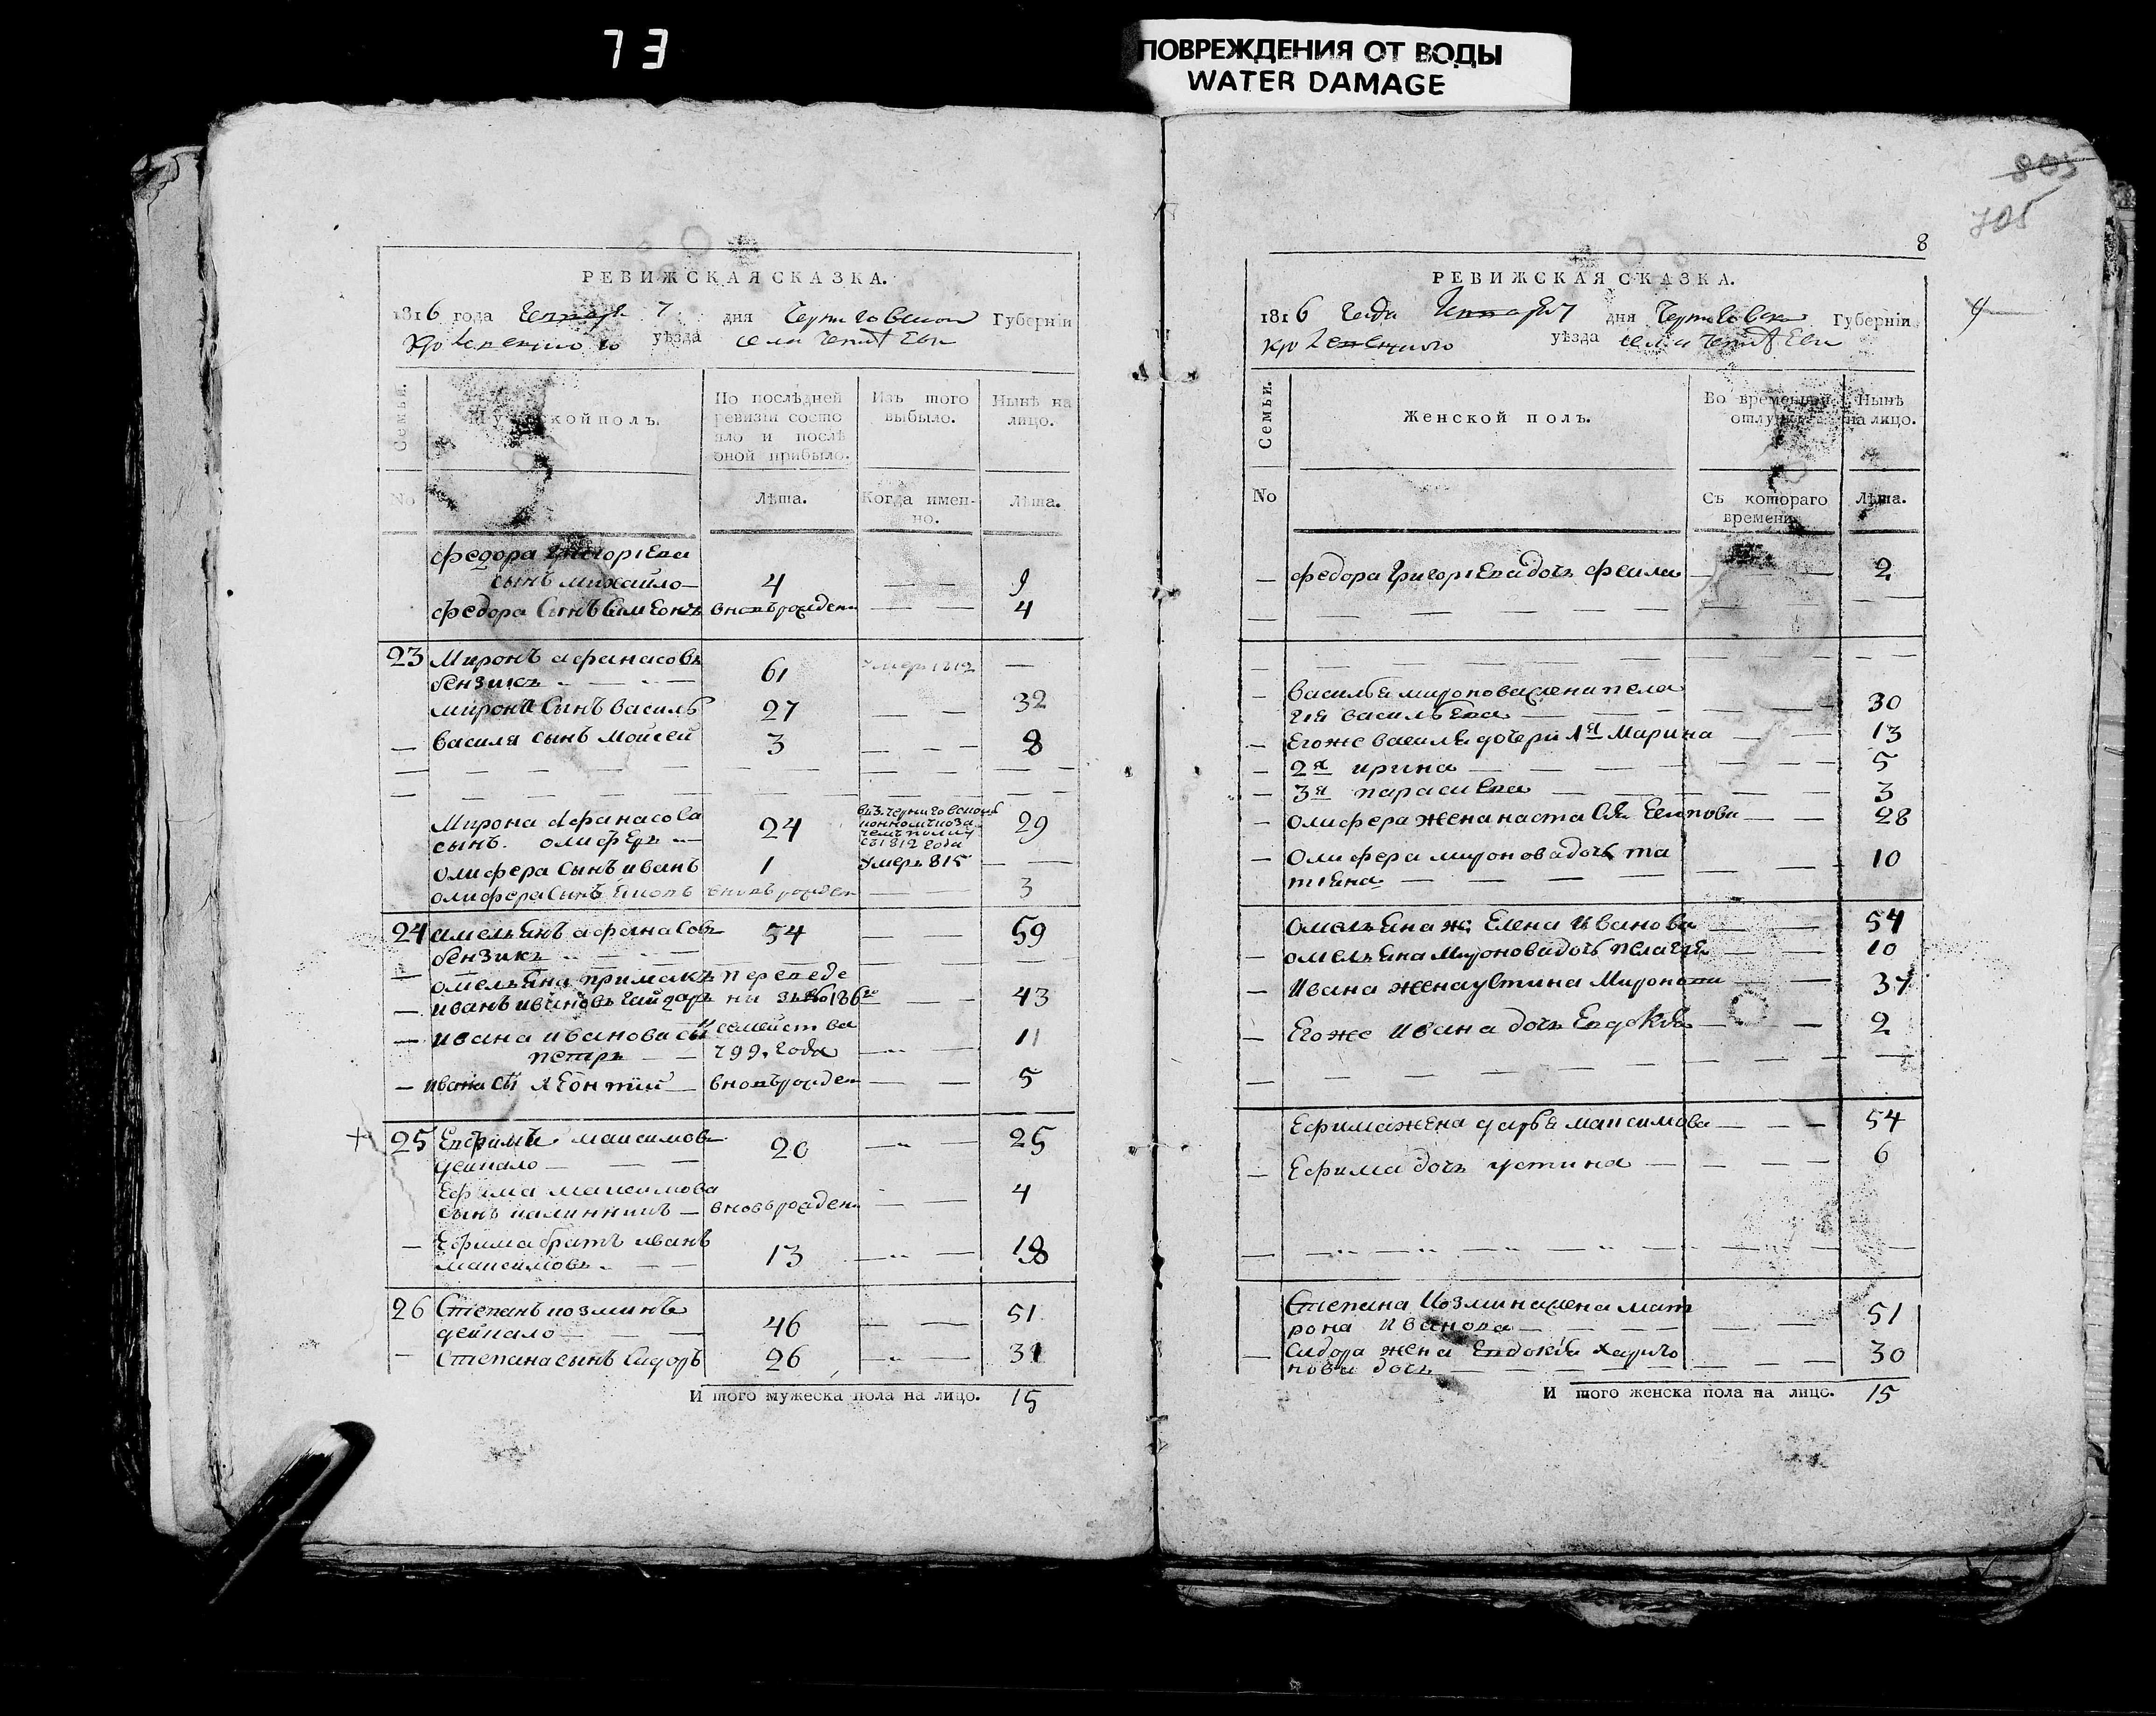 73
ПОВРЕЖДЕНИЯ ОТ ВОДЫ
WATER DAMAGE
805
705
8
РЕВИЖСКАЯ СКАЗКА.
1816 года Генваря 7 дня Черниговской Губерніи
уѣзда села
Семьи.
Мужской полъ.
По послѣдней ревизіи состояло и послѣ оной прибыло.
Изъ того выбыло.
Нынѣ на лицо.
No
Лѣта.
Когда именно.
Лѣта.
Федора Григоріева
сынъ Михайло 4 9
Федора сынъ Симеонъ вновьрожден 4
23 Миронъ Афанасовъ
бензикъ 61 умеръ 1812
Мирона сынъ Василь 27 32
Василя сынъ Мойсей 3 8
Мирона Афанасова
сынъ Олиферъ 24 29
с 1812 года
Олифера сынъ Иванъ 1 умеръ 815
Олифера сынъ вновьрожден 3
24 Амельянъ Афанасовъ 54 59
бензикъ
Омельяна примакъ переведе
Иванъ Ивановъ Гайдаръ 43
Ивана Иванова сынъ семейства 11
Петръ 799. года
Ивана сы Леонтий вновьрожден 5
25 Евфимъ Максимовъ 20 25
дейнало
Ефима Максимова
сынъ вновьрожден 4
Ефима братъ Иванъ
Максимовъ 13 18
26 Степанъ Козминъ
дейнало 46 51
Степана сынъ Сидоръ 26 31
И того мужеска пола на лицо. 15
РЕВИЖСКАЯ СКАЗКА.
1816 года Генваря 7 дня Черниговской Губерніи
уѣзда села
Семьи.
Женской полъ.
Во временной отлучкѣ
Нынѣ на лицо.
No
Съ котораго времени
Лѣта.
Федора Григоріева дочь 2
Василья Миронова жена Пела
гія Васильева 30
Егоже Василя дочери 1я Марина 13
2я Ирина 5
3я Параскева 3
Олифера жена Настасія 28
Олифера Миронова дочь Та
тіена 10
Омельяна ж: Елена Иванова 54
Омельяна Миронова дочь Пелагія 10
Ивана жена Устина Миронова 37
Егоже Ивана дочь Евдокія 2
Ефима жена Дарья Максимова 54
Ефима дочь Устина 6
Степана Козмина жена Мат
рона Иванова 51
Сидора жена Евдокія Харито
нова дочь 30
И того женска пола на лицо. 15